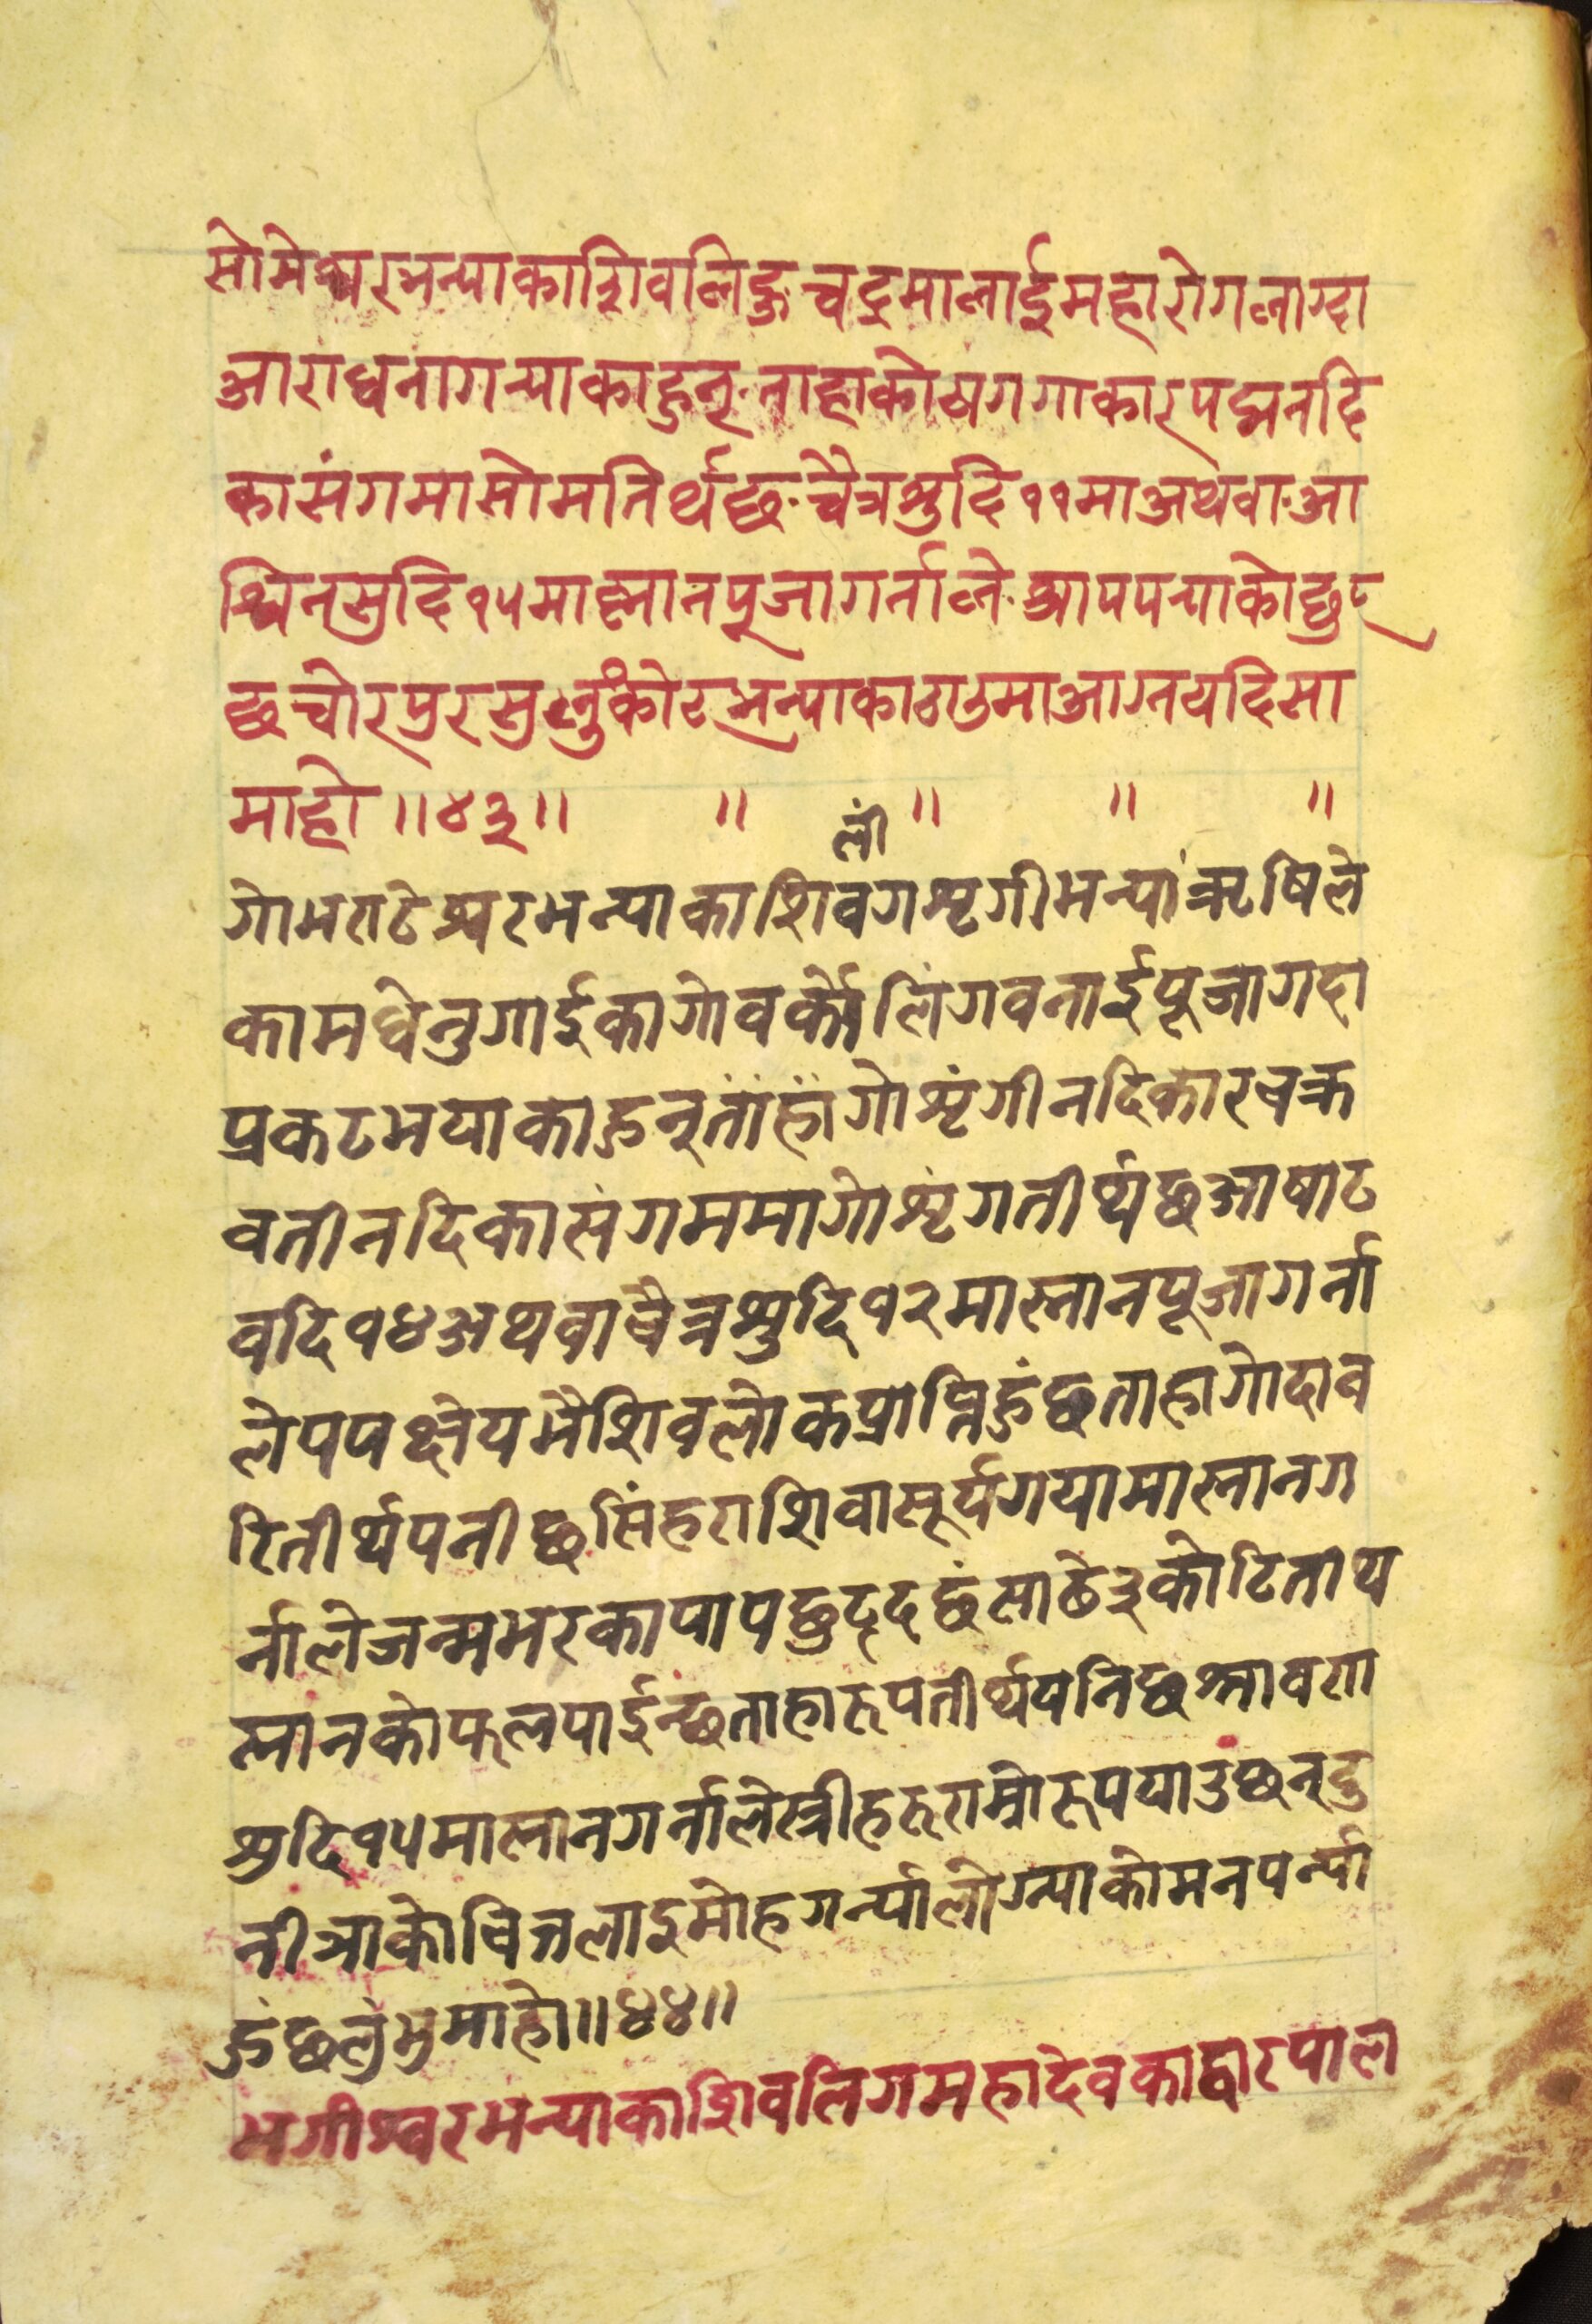 सोमेश्वरभन्याकाशिवलिङ्ग चद्रमालाईमहारोगलाग्दा
आराधनागन्याकाहुन् ताहाकोष्ठागगाकारपद्मनदि
कासंगमासोमतिर्थछ चैत्रश्रुदि११माअथवा आ
श्विनसुदि१५मास्नानपूजागर्नाले श्रापपऱ्याकोछुट्
छचोरपुरसुलुंकोटभन्याकाठाउमाआग्नयदिसा
माहो॥४३॥ ॥ ॥ ॥ ॥
लीं
गोभराटेश्वरभन्याकाशिवगशृगीभन्याऋषिले
कामधेनुगाईकागोवर्कोलिंगवनाईपूजागदा
प्रकटभयाकाहुन्तांहांगोशृंगीनदिकारचक्र
वतीनदिकासंगममागोशृंगतीर्थछआषाट
वदि१४अथवाचैत्रश्रुदि१२मास्नानपूजागर्ना
लेपपक्षेयभैशिवलोकप्राप्तिहुंछताहागोदाव
रितीर्थपनीछसिंहराशिवासूर्यगयामास्नानग
र्नालेजन्मभरकापापछुट्दछंसाठे३कोटितीथ
स्नानकोफलपाईन्छताहारूपतीर्थपनिछश्रावण
श्रुदि१५मास्नानगर्नालेस्त्रीहरूराम्रोरूपपाउछन्दु
नीञाकोचित्तलाइमोहगर्न्यालोग्न्याकोमनपर्न्या
हुंछलुंभुमाहो॥४४॥
भगीश्वरभन्याकाशिवलिगमहादेवकाद्वारपाल